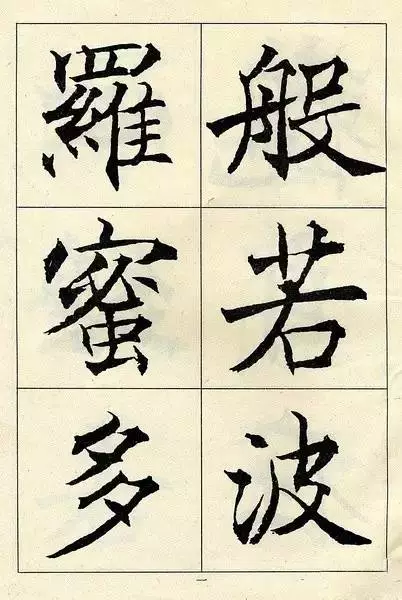 般若波
羅蜜多
一